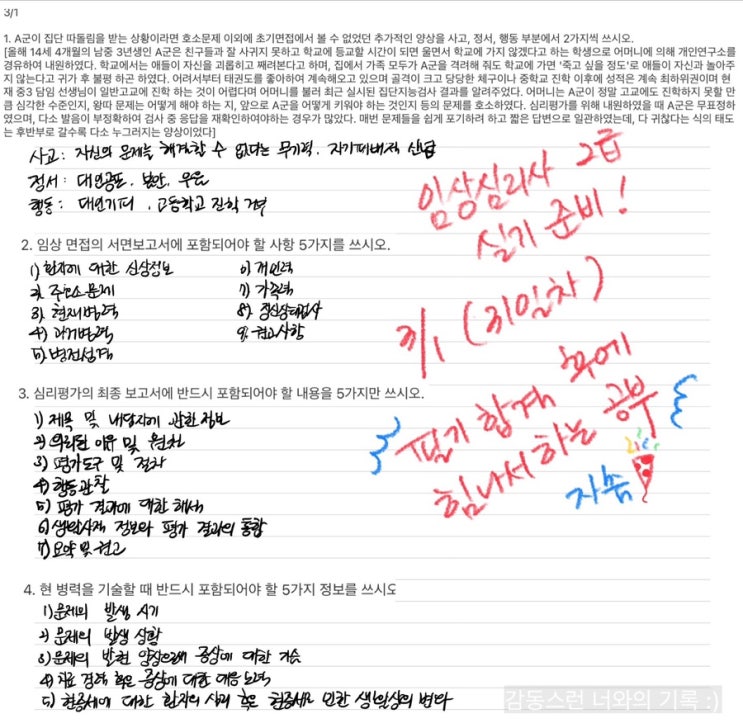 3/1
1. A군이 집단 따돌림을 받는 상황이라면 호소문제 이외에 초기면접에서 볼 수 없었던 추가적인 양상을 사고, 정서, 행동 부분에서 2가지씩 쓰시오.
[올해 14세 4개월의 남중 3년생인 A군은 친구들과 잘 사귀지 못하고 학교에 등교할 시간이 되면 울면서 학교에 가지 않겠다고 하는 학생으로 어머니에 의해 개인연구소를
경유하여 내원하였다. 학교에서는 애들이 자신을 괴롭히고 때려본다고 하며, 집에서 가족 모두가 A군을 격려해 줘도 학교에 가면 '죽고 싶을 정도'로 애들이 자신과 놀아주
지 않는다고 귀가 후 불평 하곤 하였다. 어려서부터 태권도를 좋아하여 계속해오고 있으며 골격이 크고 당당한 체구이나 중학교 진학 이후에 성적은 계속 최하위권이며 현
재 중3 담임 선생님이 일반고교에 진학 하는 것이 어렵다며 어머니를 불러 최근 실시된 집단지능검사 결과를 알려주었다. 어머니는 A군이 정말 고교에도 진학하지 못할 만
큼 심각한 수준인지, 왕따 문제는 어떻게 해야 하는 지, 앞으로 A군을 어떻게 키워야 하는 것인지 등의 문제를 호소하였다. 심리평가를 위해 내원하였을 때 A군은 무표정하
였으며, 다소 발음이 부정확하여 검사 중 응답을 재확인하여야하는 경우가 많았다. 매번 문제들을 쉽게 포기하려 하고 짧은 답변으로 일관하였는데, 다 귀찮다는 식의 태도
는 후반부로 갈수록 다소 누그러지는 양상이었다]
사고 : 자신의 문제를 해결할 수 없다는 무기력, 자기패배적 신념
정서 : 대인공포, 불안, 우울
행동 : 대인기피, 고등학교 진학 거부
임상심리사 2급
실기 준비!
3/1 (31일차)
필기 합격 후에
힘나서 하는 공부
자축
2. 임상 면접의 서면보고서에 포함되어야 할 사항 5가지를 쓰시오.
1) 환자에 대한 신상정보
2) 주호소문제
3) 현재병력
4) 과거병력
5) 병전성격
6) 개인력
7) 가족력
8) 정신상태검사
9) 권고사항
3. 심리평가의 최종 보고서에 반드시 포함되어야 할 내용을 5가지만 쓰시오.
1) 제목 및 내담자에 관한 정보
2) 의뢰된 이유 및 원천
3) 평가도구 및 절차
4) 행동관찰
5) 평가 결과에 대한 해석
6) 생활사적 정보와 평가 결과의 통합
7) 요약 및 권고
4. 현 병력을 기술할 때 반드시 포함되어야 할 5가지 정보를 쓰시오
1) 문제의 발생 시기
2) 문제의 발생 상황
3) 문제의 발현 양상으로서 증상에 대한 기술
4) 치료 경력 혹은 증상에 대한 대응 노력
5) 현증세에 대한 환자의 시각 혹은 현증세로 인한 생활상의 변화
감동스런 너와의 기록 :)